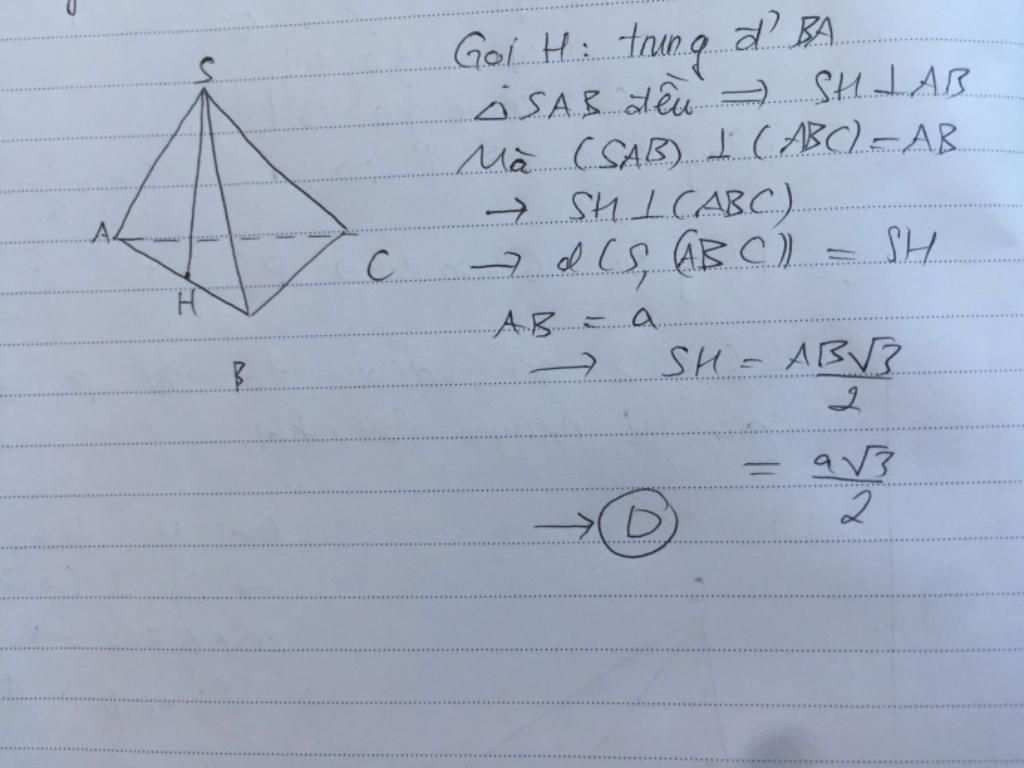 S
A
H
C
B
Gọi H: trung đ' BA
△SAB đều => SH ⊥ AB
Mà (SAB) ⊥ (ABC) = AB
→ SH ⊥ (ABC)
→ d(S, (ABC)) = SH
AB = a
→ SH = AB√3/2
= a√3/2
→ D